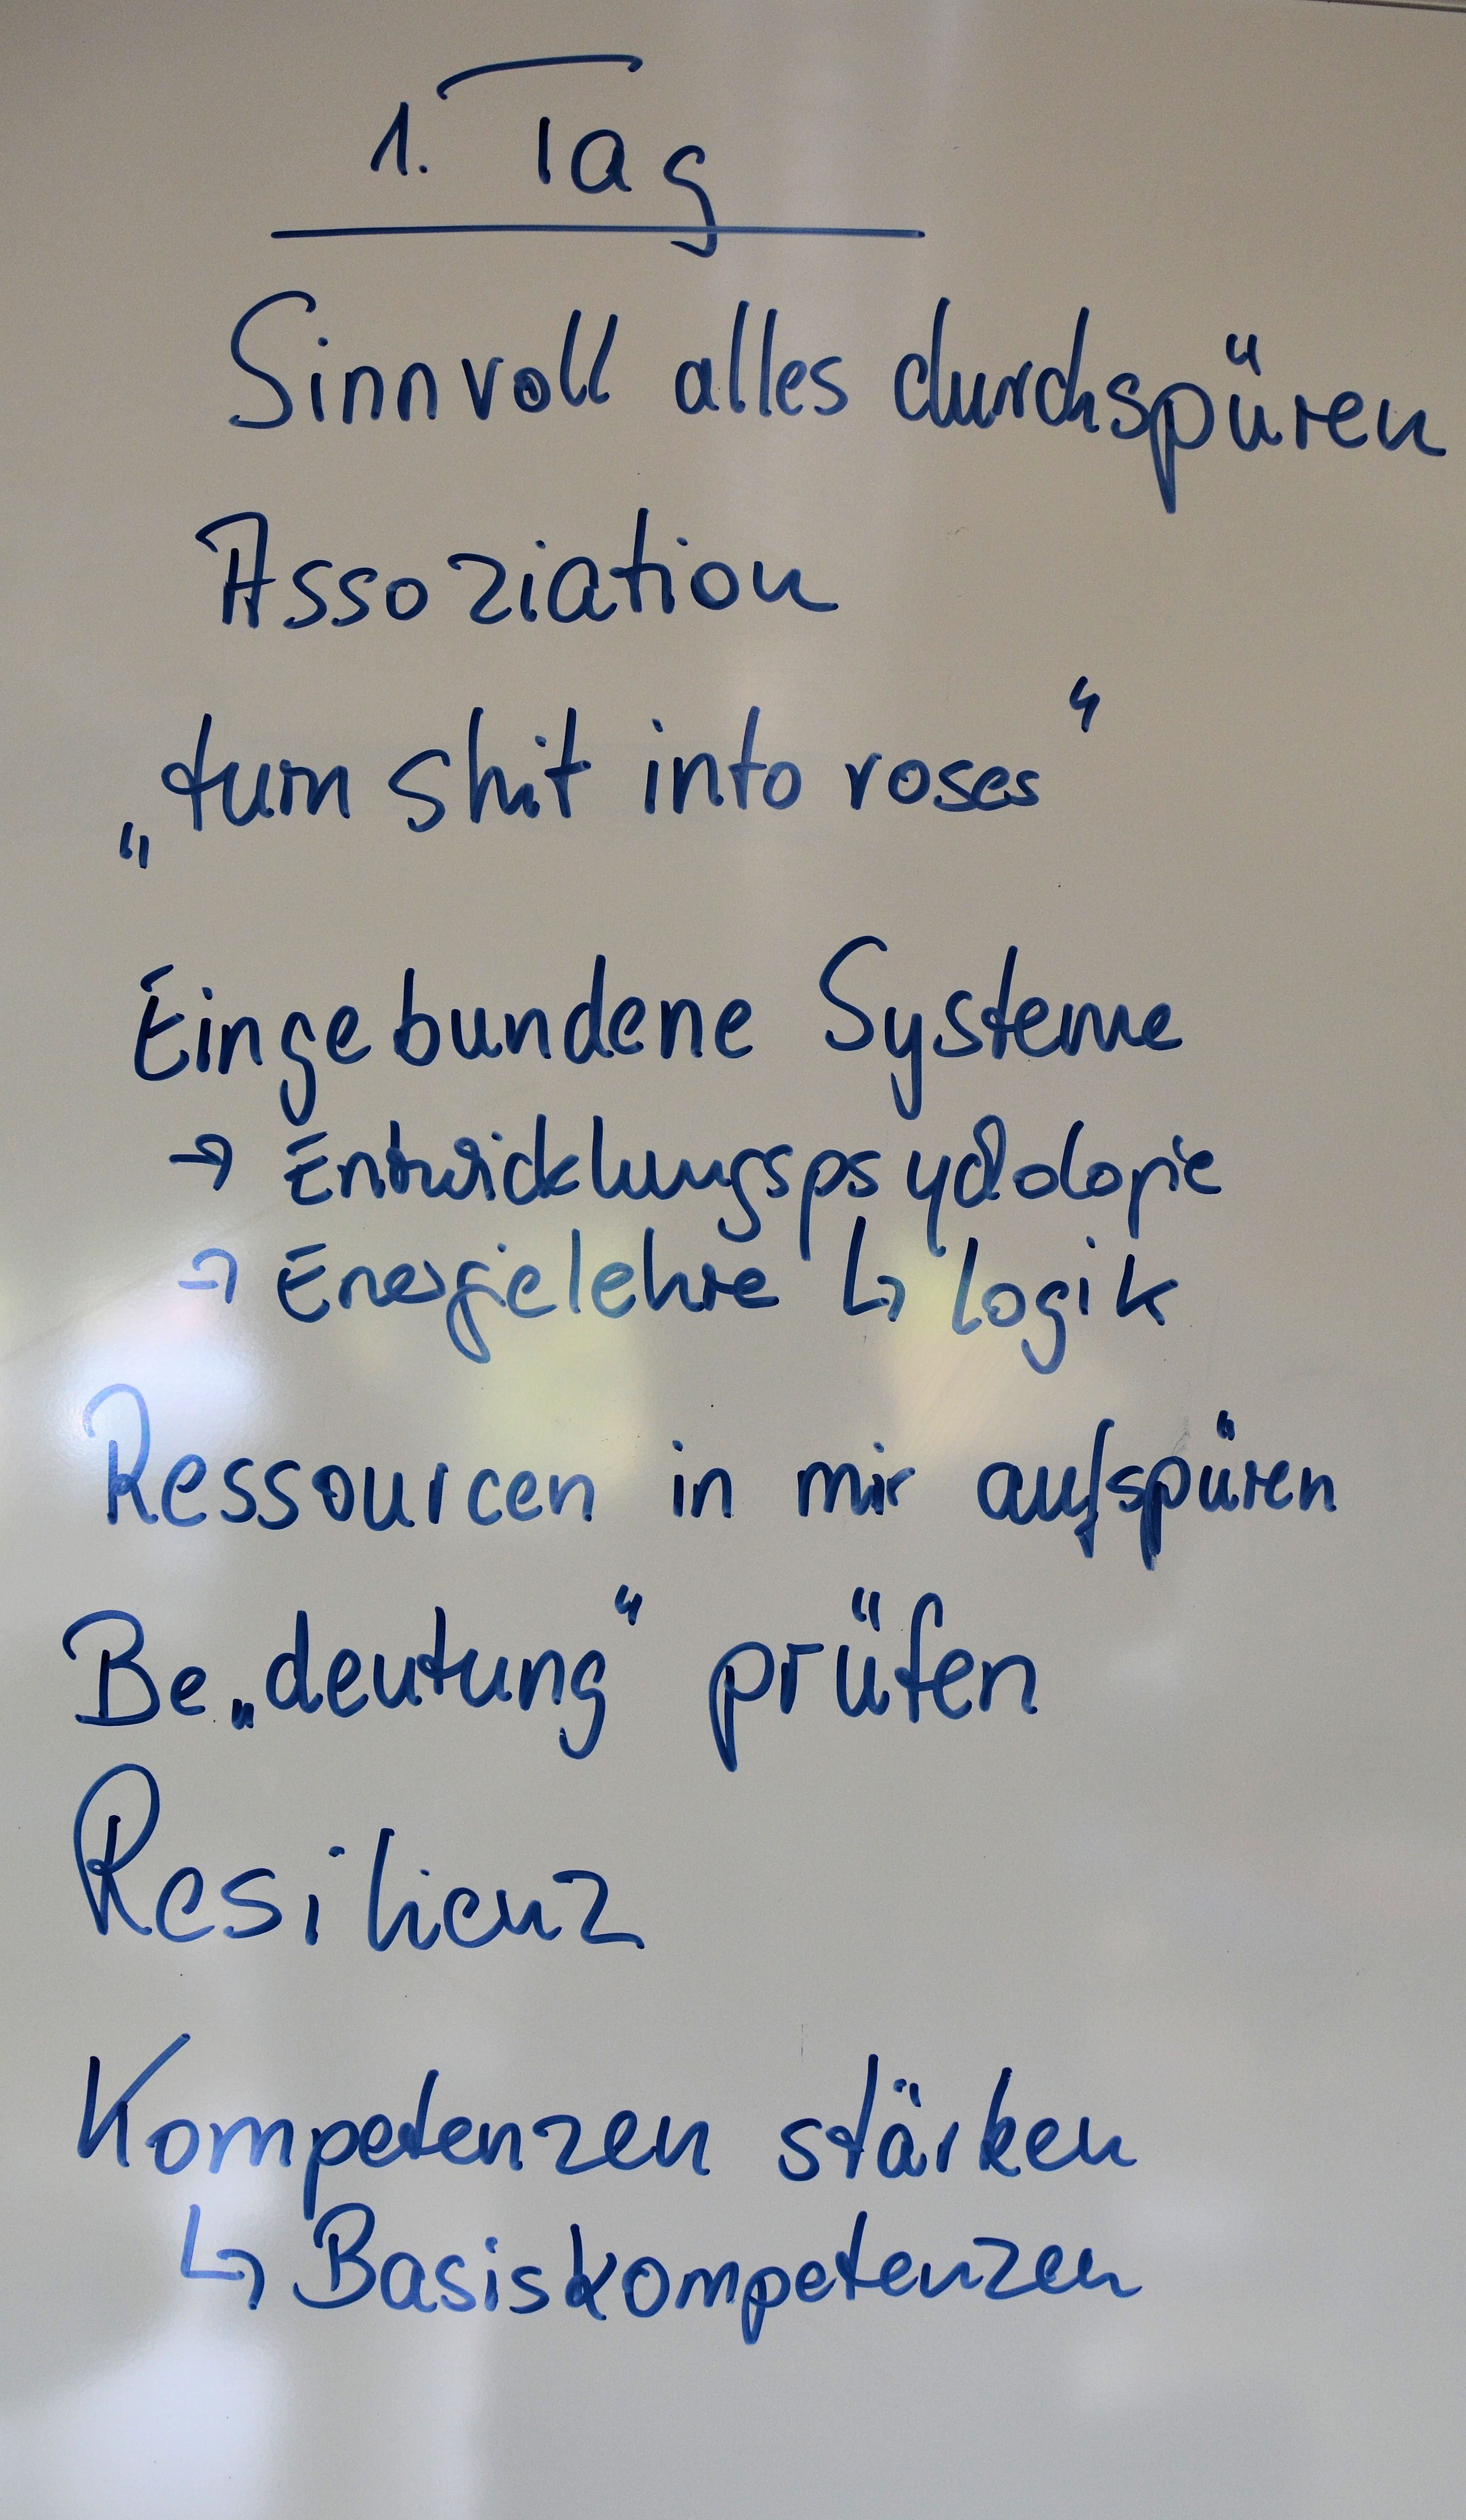 1. Tag
Sinnvoll alles durchspüren
Assoziation
„turn shit into roses“
Eingebundene Systeme
→ Entwicklungspsychologie
→ Energielehre ↳ logik
Ressourcen in mir aufspüren
Be„deutung“ prüfen
Resilienz
Kompetenzen stärken
↳ Basiskompetenzen